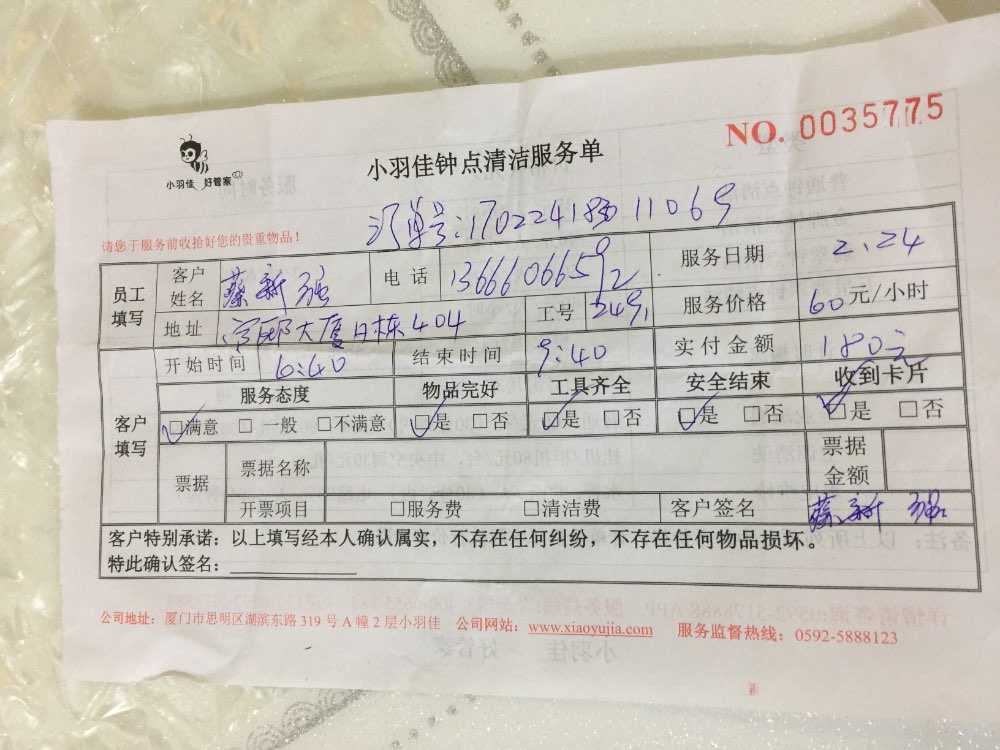 NO. 0035775
小羽佳 好管家
小羽佳钟点清洁服务单
请您于服务前收拾好您的贵重物品！
订单号:1702241 11069
员工填写 客户姓名 蔡新强 电话 13666066592 服务日期 2.24
地址 大厦 栋404 工号 服务价格 60元/小时
开始时间 6:40 结束时间 9:40 实付金额 180元
客户填写 服务态度 物品完好 工具齐全 安全结束 收到卡片
☑满意 □一般 □不满意 ☑是 □否 ☑是 □否 ☑是 □否 ☑是 □否
票据 票据名称 票据金额
开票项目 □服务费 □清洁费 客户签名 蔡新强
客户特别承诺：以上填写经本人确认属实，不存在任何纠纷，不存在任何物品损坏。
特此确认签名：
公司地址：厦门市思明区湖滨东路 319 号 A 幢 2 层小羽佳 公司网站：www.xiaoyujia.com 服务监督热线：0592-5888123